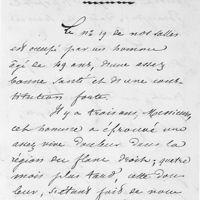 Le no 19 de nos salles
est occupé par un homme
âgé de 49 ans, d'une assez
bonne santé et d'une cons
titution forte.
Il y a trois ans, Messieurs,
cet homme a éprouvé une
assez vive douleur dans la
région du flanc droit; quatre
mois plus tard, cette dou
leur, s'étant fait de nou